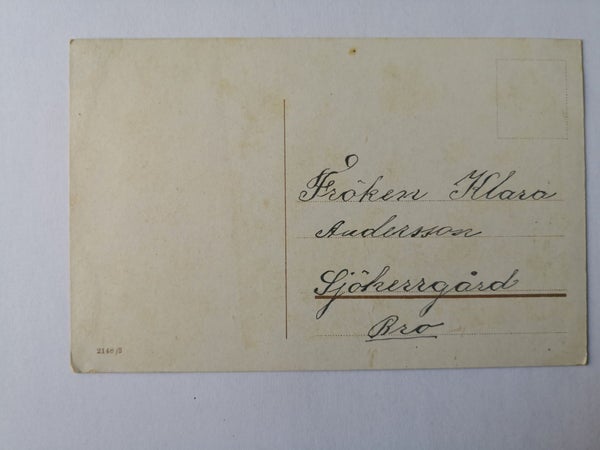 Fröken Klara
Andersson
Sjöherrgård
Bro
2146/3